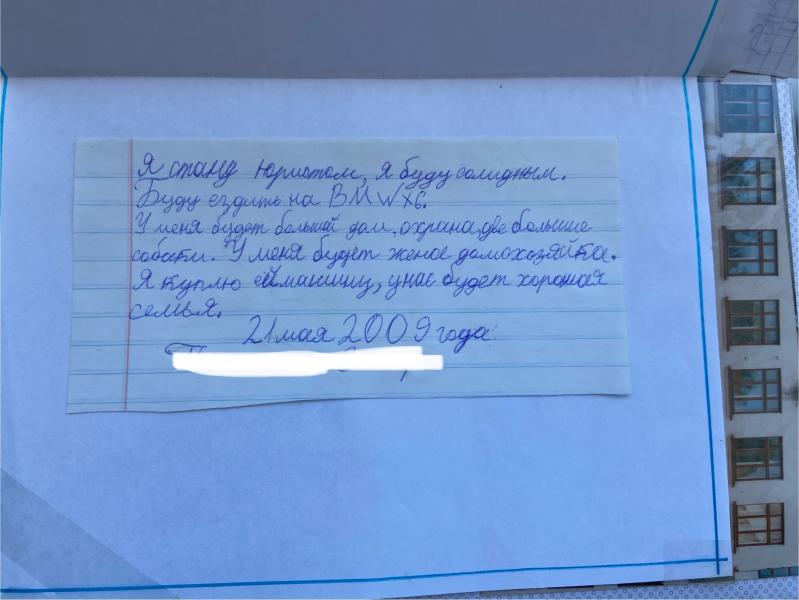 Я стану юристом, я буду солидным.
Буду ездить на BMW X6.
У меня будет большой дом, охрана, две большие
собаки. У меня будет жена домохозяйка.
Я куплю ей машину, у нас будет хорошая
семья.
21 мая 2009 года.